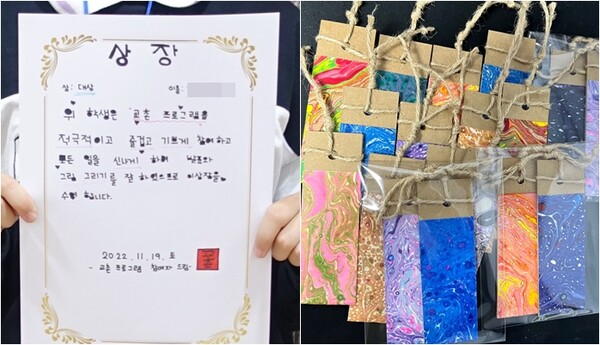 상 장
상: 대상 이름:
위 학생은 교촌 프로그램을
적극적이고 즐겁고 기쁘게 참여하고
모든 일을 신나게 하며 발표와
그림 그리기를 잘 하였으므로 이상장을
수여 합니다.
2022. 11. 19. 토
- 교촌 프로그램 참여자 드림-